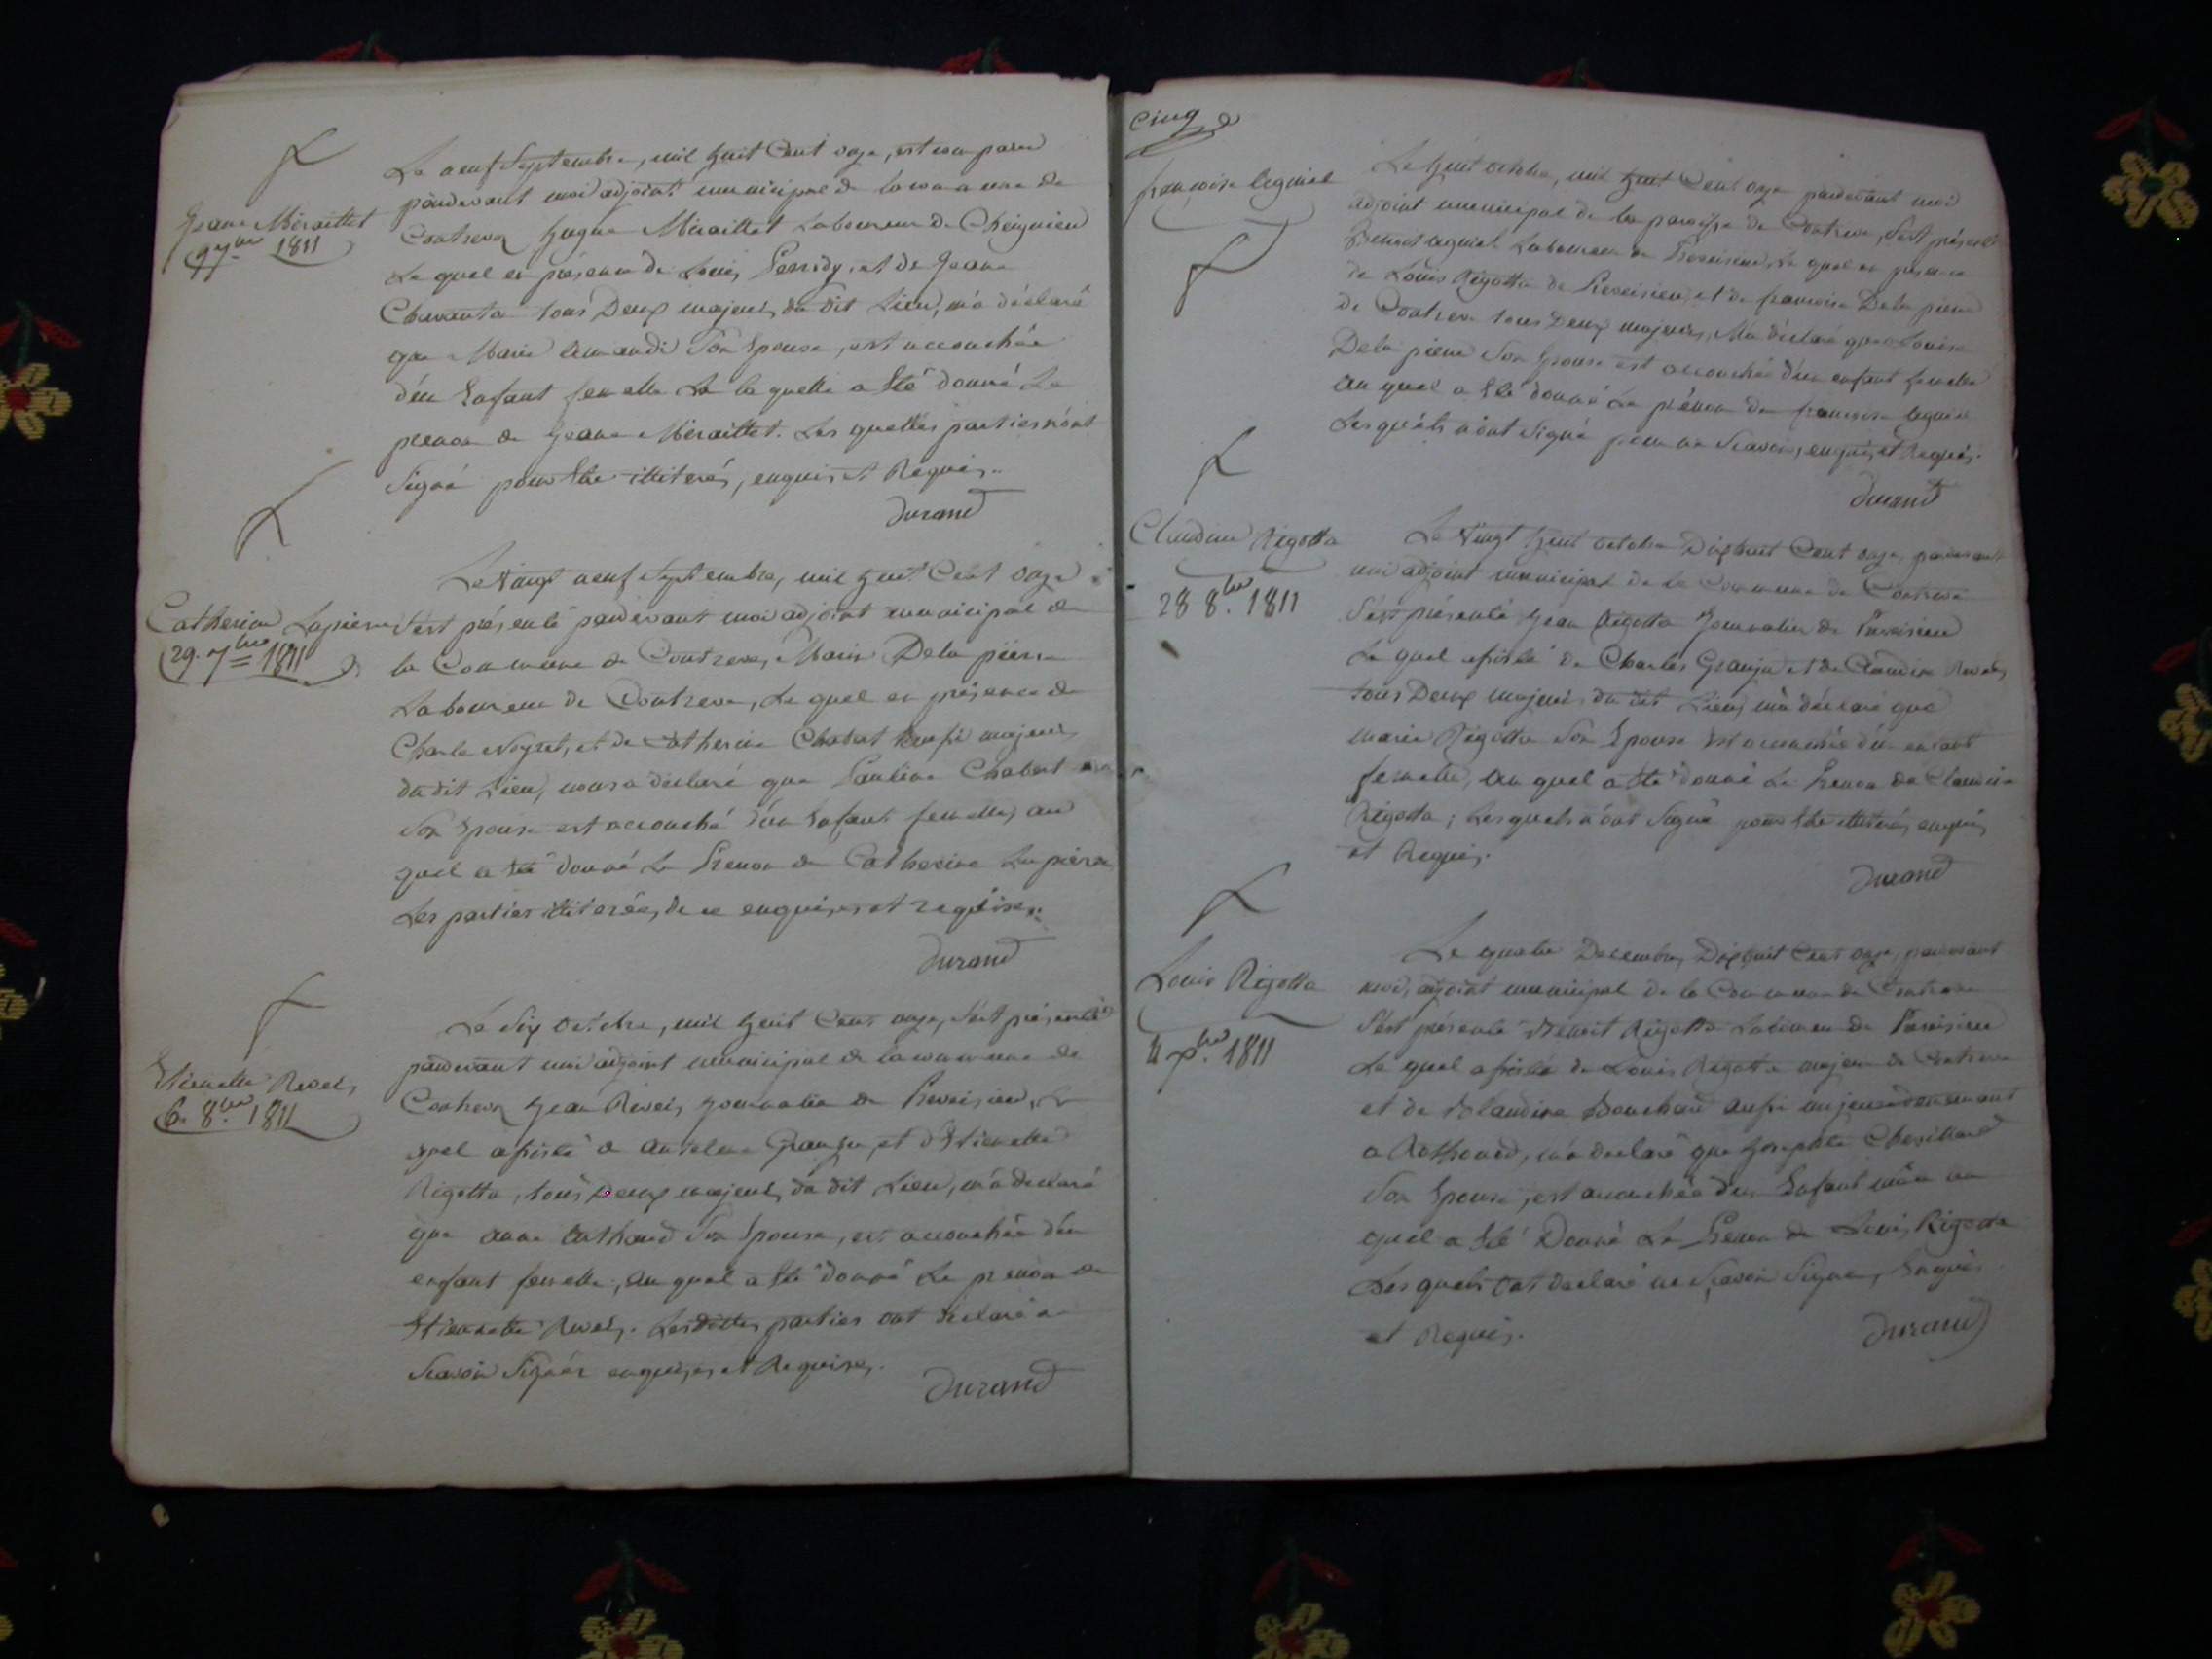 Jeane Miraillet
9 7bre 1811
Le neuf Septembre, mil huit Cent onze, est comparu
pardevant moi adjoint municipal de la commune de
Contrevoz hugue Miraillet Laboureur de Cheignieu
Le quel en présence de Louis et de Jeane
tous Deux majeurs du dit Lieu, m'a déclaré
que Marie Son Epouse, est accouchée
d'un Enfant femelle à la quelle a Eté donné Le
prenom de Jeane Miraillet. Les quelles parties n'ont
Signé pour Etre illiterés, enquis et Requis.
Durand
Catherine Lapierre
29. 7bre 1811
Le Vingt neuf Septembre, mil huit Cent onze
s'est présenté pardevant moi adjoint municipal de
la Commune de Contrevoz, Marin Dela pierre
Laboureur de Contrevoz, Le quel en présence de
Charle Neyret, et de Catherine Chabert aussi majeurs
du dit Lieu, nous a déclaré que Pauline Chabert
Son Epouse est accouché d'un Enfant femelle, au
quel a Eté donné Le Prenom de Catherine Lapierre
Les parties illiterées, de ce enquises et requises.
Durand
Etienette Revels
6. 8bre 1811
Le Six Octobre, mil huit Cent onze, s'est présenté
pardevant moi adjoint municipal de la commune de
Contrevoz Jean Revels journalier de Preveisieu, Le
quel assisté de Antelme Granju et d'Etienette
Rigotta, tous Deux majeurs du dit Lieu, m'a declaré
que anne Son Epouse, est accouchée d'un
enfant femelle, au quel a Eté donné Le prenom de
Etienette Revels. Lesdittes parties ont declaré ne
Scavoir Signér enquises et Requises.
Durand
cinq
françoise leguiel
Le huit octobre, mil huit Cent onze pardevant moi
adjoint municipal de la paroisse de Contrevoz, s'est présenté
Benoit Laboureur de Preveisieu, Le quel en présence
de Louis Rigotta de Preveisieu, et de françoise Dela pierre
de Contrevoz tous Deux majeurs, M'a déclaré que Louise
Dela pierre Son Epouse est accouchée d'un enfant femelle
au quel a Eté donné Le prénom de françoise leguiel
Lesquels n'ont Signé pour ne Scavoir, enquis et Requis.
Durand
Claudine Rigotta
28 8bre. 1811
Le Vingt huit octobre Dixhuit Cent onze, pardevant
moi adjoint municipal de la Commune de Contrevoz
s'est présenté Jean Rigotta Journalier de Preveisieu
Le quel assisté de Charles Granju et de Claudine Revels
tous Deux majeurs du dit Lieu, m'a déclaré que
marie Rigotta Son Epouse Est accouchée d'un enfant
femelle, au quel a Eté donné Le Prenom de Claudine
Rigotta; Lesquels n'ont Signé pour Etre illiterés, enquis
et Requis.
Durand
Louis Rigotta
4 xbre. 1811
Le quatre Decembre Dixhuit Cent onze, pardevant
moi, adjoint municipal de la Commune de Contrevoz
s'est présenté Benoit Rigotta Laboureur de Preveisieu
Le quel assisté de Louis Rigotta majeur de Contrevoz
et de Claudine Bouchard aussi majeure demeurant
a Rothonod, m'a declaré que Josephte Chevillard
Son Epouse, est accouchée d'un Enfant mâle au
quel a Eté Donné Le Prenom de Louis Rigotta
Lesquels ont declaré ne Scavoir Signer, Enquis
et Requis.
Durand